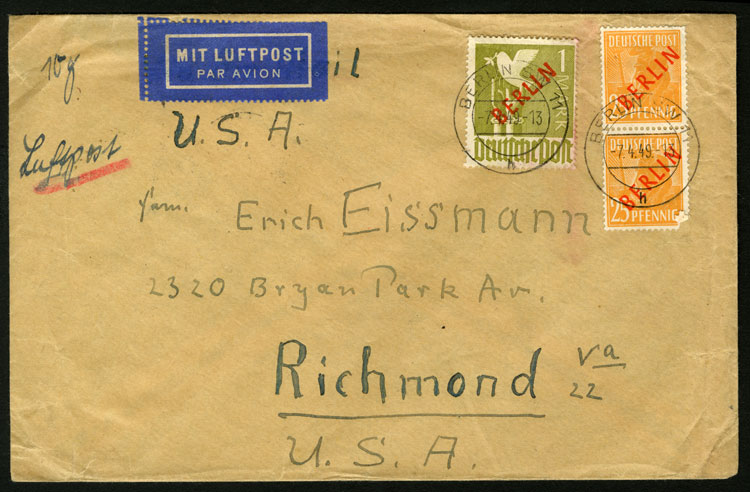 10 g.
MIT LUFTPOST
PAR AVION
il
U.S.A.
Luftpost
1
MARK
Deutsche Post
BERLIN
BERLIN
11
-7.4.49.-13
h
DEUTSCHE POST
PFENNIG
BERLIN
BERLIN
-7.4.49.
h
DEUTSCHE POST
25 PFENNIG
BERLIN
Erich Eissmann
2320 Bryan Park Av.
Richmond Va
22
U.S.A.